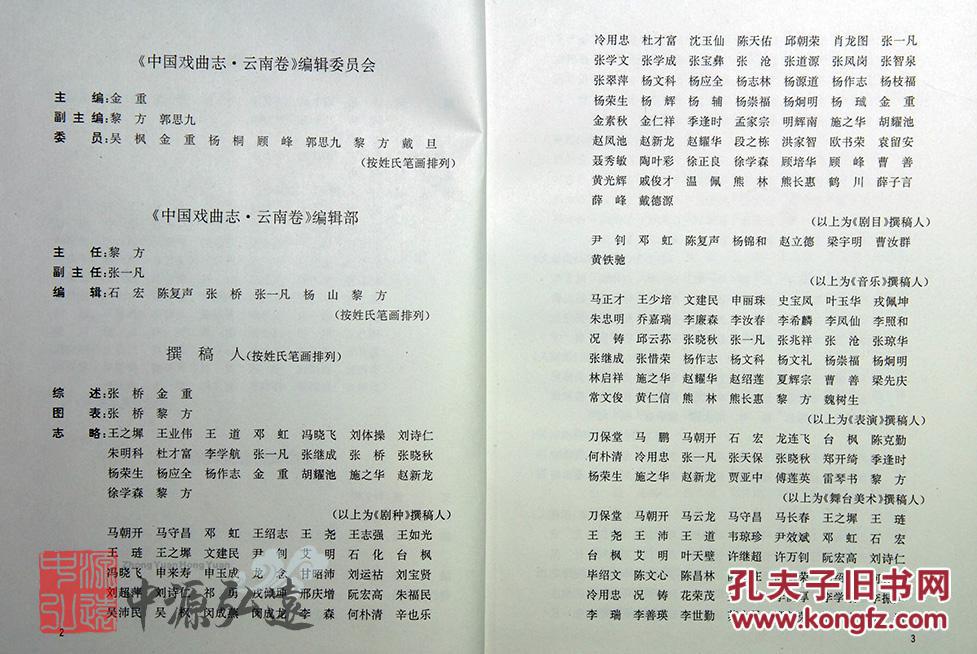 《中国戏曲志·云南卷》编辑委员会
主 编:金 重
副主编:黎 方 郭思九
委 员:吴 枫 金 重 杨 桐 顾 峰 郭思九 黎 方 戴 旦
(按姓氏笔画排列)
《中国戏曲志·云南卷》编辑部
主 任:黎 方
副主任:张一凡
编 辑:石 宏 陈复声 张 桥 张一凡 杨 山 黎 方
(按姓氏笔画排列)
撰 稿 人(按姓氏笔画排列)
综 述:张 桥 金 重
图 表:张 桥 黎 方
志 略:王之墀 王业伟 王 道 邓 虹 冯晓飞 刘体操 刘诗仁
朱明科 杜才富 李学航 张一凡 张继成 张 桥 张晓秋
杨荣生 杨应全 杨作志 金 重 胡耀池 施之华 赵新龙
徐学森 黎 方
(以上为《剧种》撰稿人)
马朝开 马守昌 邓 虹 王绍志 王 尧 王志强 王如光
王 琏 王之墀 文建民 尹 钊 艾 明 石 化 台 枫
冯晓飞 申来寿 申玉成 龙 念 甘昭沛 刘运祜 刘宝贤
刘超萍 刘诗仁 祁 勇 戎佩坤 邢庆增 阮宏高 朱福民
吴沛民 吴 枫 闵成燕 闵成龙 李 森 何朴清 辛也乐
2
冷用忠 杜才富 沈玉仙 陈天佑 邱朝荣 肖龙图 张一凡
张学文 张学成 张宝彝 张 沧 张道源 张凤岗 张智泉
张翠萍 杨文科 杨应全 杨志林 杨源道 杨作志 杨枝福
杨荣生 杨 辉 杨 辅 杨崇福 杨炯明 杨 珹 金 重
金素秋 金仁祥 季逢时 孟家宗 明辉南 施之华 胡耀池
赵凤池 赵新龙 赵耀华 段之栋 洪家智 欧书荣 袁留安
聂秀敏 陶叶彩 徐正良 徐学森 顾培华 顾 峰 曹 善
黄光辉 戚俊才 温 佩 熊 林 熊长惠 鹤 川 薛子言
薛 峰 戴德源
(以上为《剧目》撰稿人)
尹 钊 邓 虹 陈复声 杨锦和 赵立德 梁宇明 曹汝群
黄铁驰
(以上为《音乐》撰稿人)
马正才 王少培 文建民 申丽珠 史宝凤 叶玉华 戎佩坤
朱忠明 乔嘉瑞 李廉森 李汝春 李希麟 李凤仙 李照和
况 铸 邱云荪 张晓秋 张一凡 张兆祥 张 沧 张琼华
张继成 张惜荣 杨作志 杨文科 杨文礼 杨崇福 杨炯明
林启祥 施之华 赵耀华 赵绍莲 夏辉宗 曹 善 梁先庆
常文俊 黄仁信 熊 林 熊长惠 黎 方 魏树生
(以上为《表演》撰稿人)
刀保堂 马 鹏 马朝开 石 宏 龙连飞 台 枫 陈克勤
何朴清 冷用忠 张一凡 张天保 张晓秋 郑开绮 季逢时
杨荣生 施之华 赵新龙 贾亚中 傅莲英 雷琴书 黎 方
(以上为《舞台美术》撰稿人)
刀保堂 马朝开 马云龙 马守昌 马长春 王之墀 王 琏
王 尧 王 沛 王 道 韦琼珍 尹效斌 邓 虹 石 宏
台 枫 艾明 叶天壁 许继超 许万钊 阮宏高 刘诗仁
毕绍文 陈文心 陈昌林
冷用忠 况 铸 花荣茂
李 瑞 李善瑛 李世勤
3
中源弘远
ZhongYuanHongYuan
中源弘远
孔夫子旧书网
www.kongfz.com